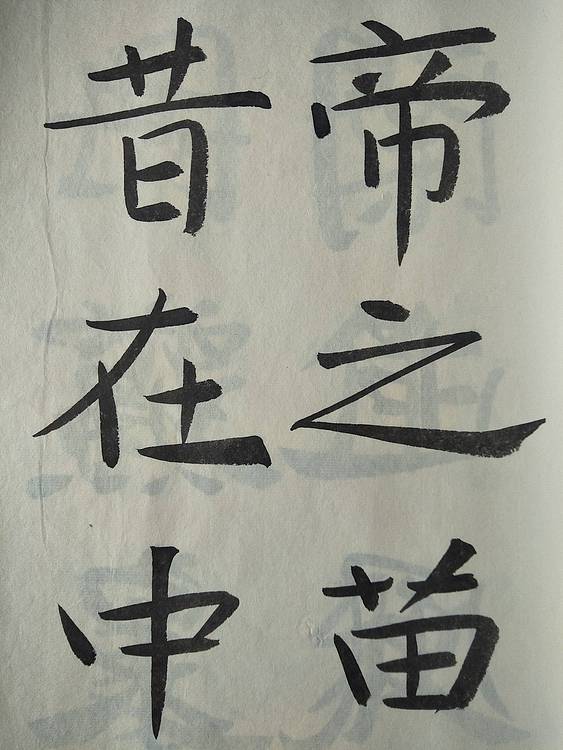 帝之苗
昔在中